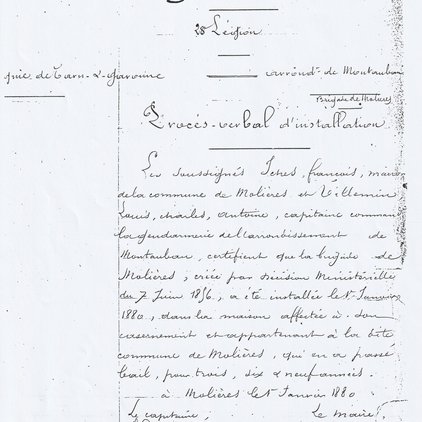 2e Légion
gnie de Tarn-&-Garonne
arrondt de Montauban
Brigade de Molières
Procès-verbal d'installation
Les soussignés Ichès, françois, maire
de la commune de Molières et Villemin
Louis, charles, antoine, capitaine comman
la gendarmerie de l'arrondissement de
Montauban, certifient que la brigade de
Molières, créée par décision Ministérielle
du 7 Juin 1856, a été installée le 1r Janvier
1880, dans la maison affectée à son
casernement et appartenant à la dite
commune de Molières, qui en a passé
bail, pour trois, six & neuf années.
à Molières le 1r Janvier 1880
Le capitaine,
Le Maire,